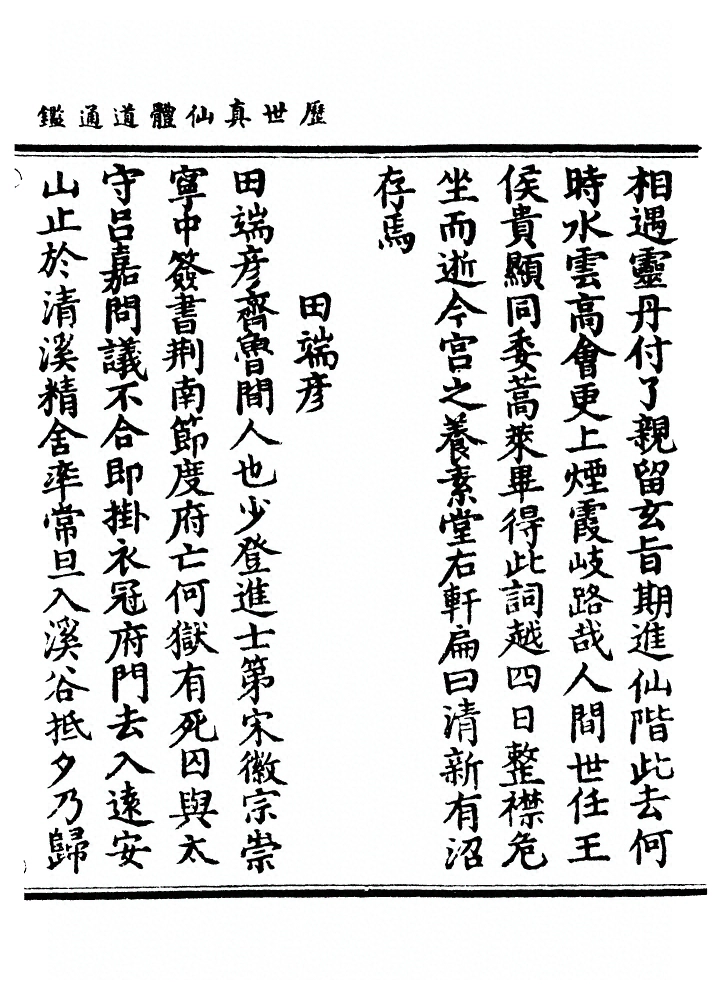 歷世真仙體道通鑑
相遇靈丹付了親留玄旨期進仙階此去何
時水雲高會更上煙霞岐路哉人間世任王
侯貴顯同委蒿萊畢得此詞越四日整襟危
坐而逝今宮之養素堂右軒扁曰清新有沼
存焉
田端彦
田端彦齊魯間人也少登進士第宋徽宗崇
寧中簽書荆南節度府亡何獄有死囚與太
守吕嘉問議不合即掛衣冠府門去入遠安
山止於清溪精舍率常旦入溪谷抵夕乃歸